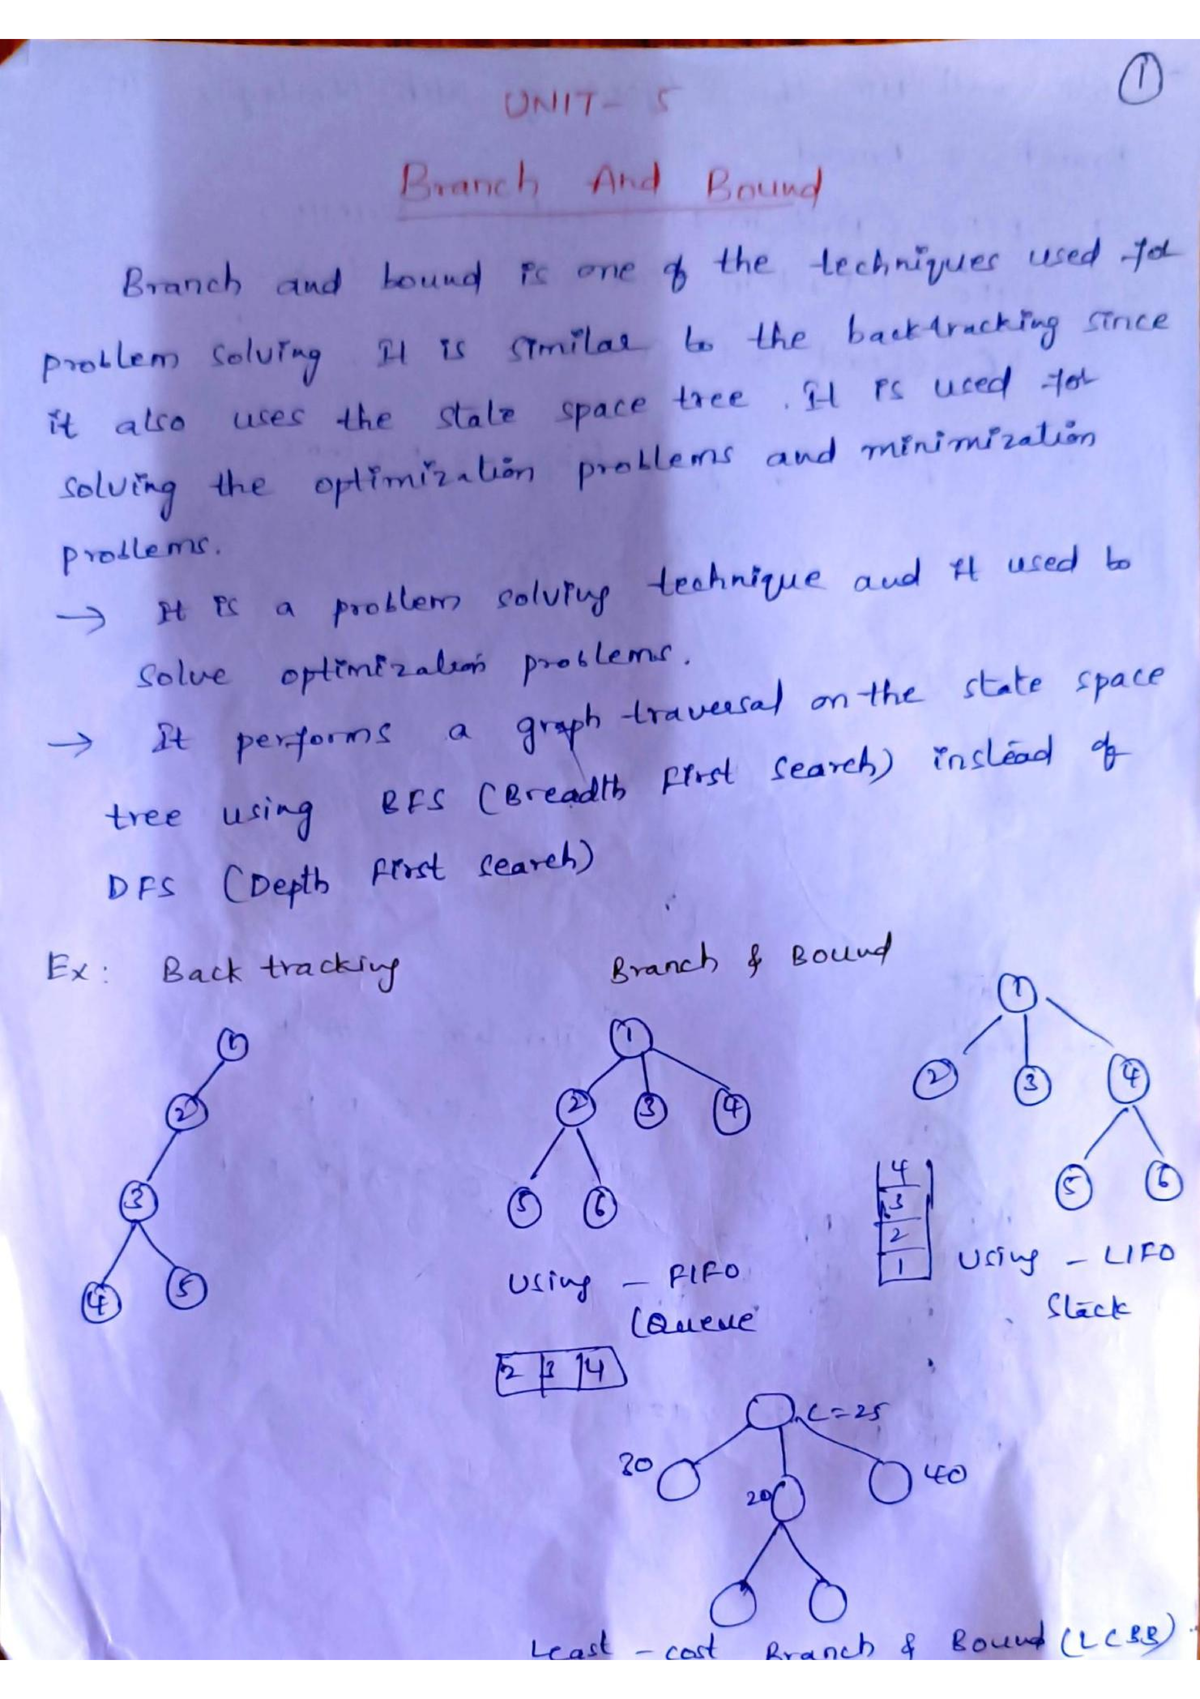 1
UNIT - 5
Branch And Bound
Branch and bound is one of the techniques used for
problem solving It is similar to the backtracking since
it also uses the state space tree . It is used for
solving the optimization problems and minimization
problems.
→ It is a problem solving technique and it used to
solve optimization problems.
→ It performs a graph traversal on the state space
tree using BFS (Breadth First search) instead of
DFS (Depth First search)
Ex: Back tracking
1
2
3
4 5
Branch & Bound
1
2 3 4
5 6
Using - FIFO
(Queue
2 3 4
1
2 3 4
5 6
4
3
2
1
Using - LIFO
Stack
C=25
30 20 40
Least - cost Branch & Bound (LCBB).